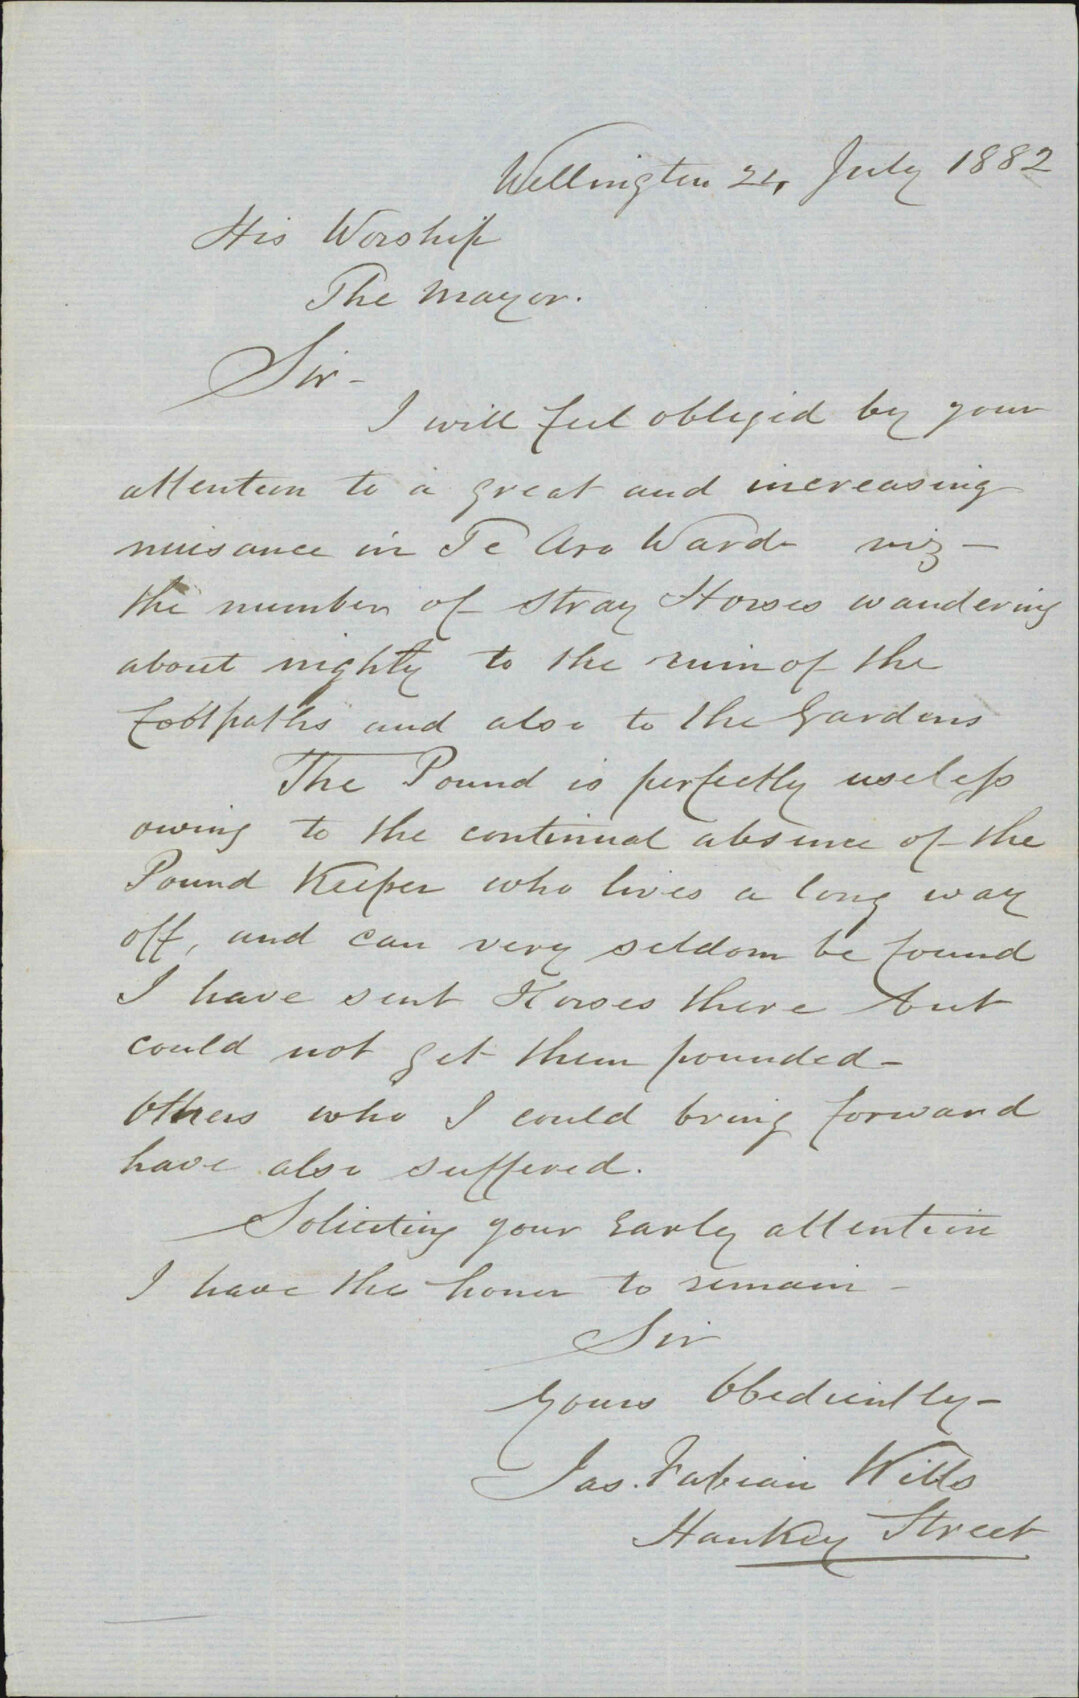 Wellington 24 July 1882
His Worship
The Mayor.
Sir -
I will feel obliged by your
attention to a great and increasing
nuisance in Te Aro Ward viz -
the number of stray Horses wandering
about nightly to the ruin of the
footpaths and also to the Gardens
The Pound is perfectly useless
owing to the continual absence of the
Pound Keeper who lives a long way
off, and can very seldom be found
I have sent Horses there but
could not get them pounded -
Others who I could bring forward
have also suffered.
Soliciting your Early attention
I have the honor to remain -
Sir
Yours Obediently -
Jas. Fabian Wills
Hankey Street